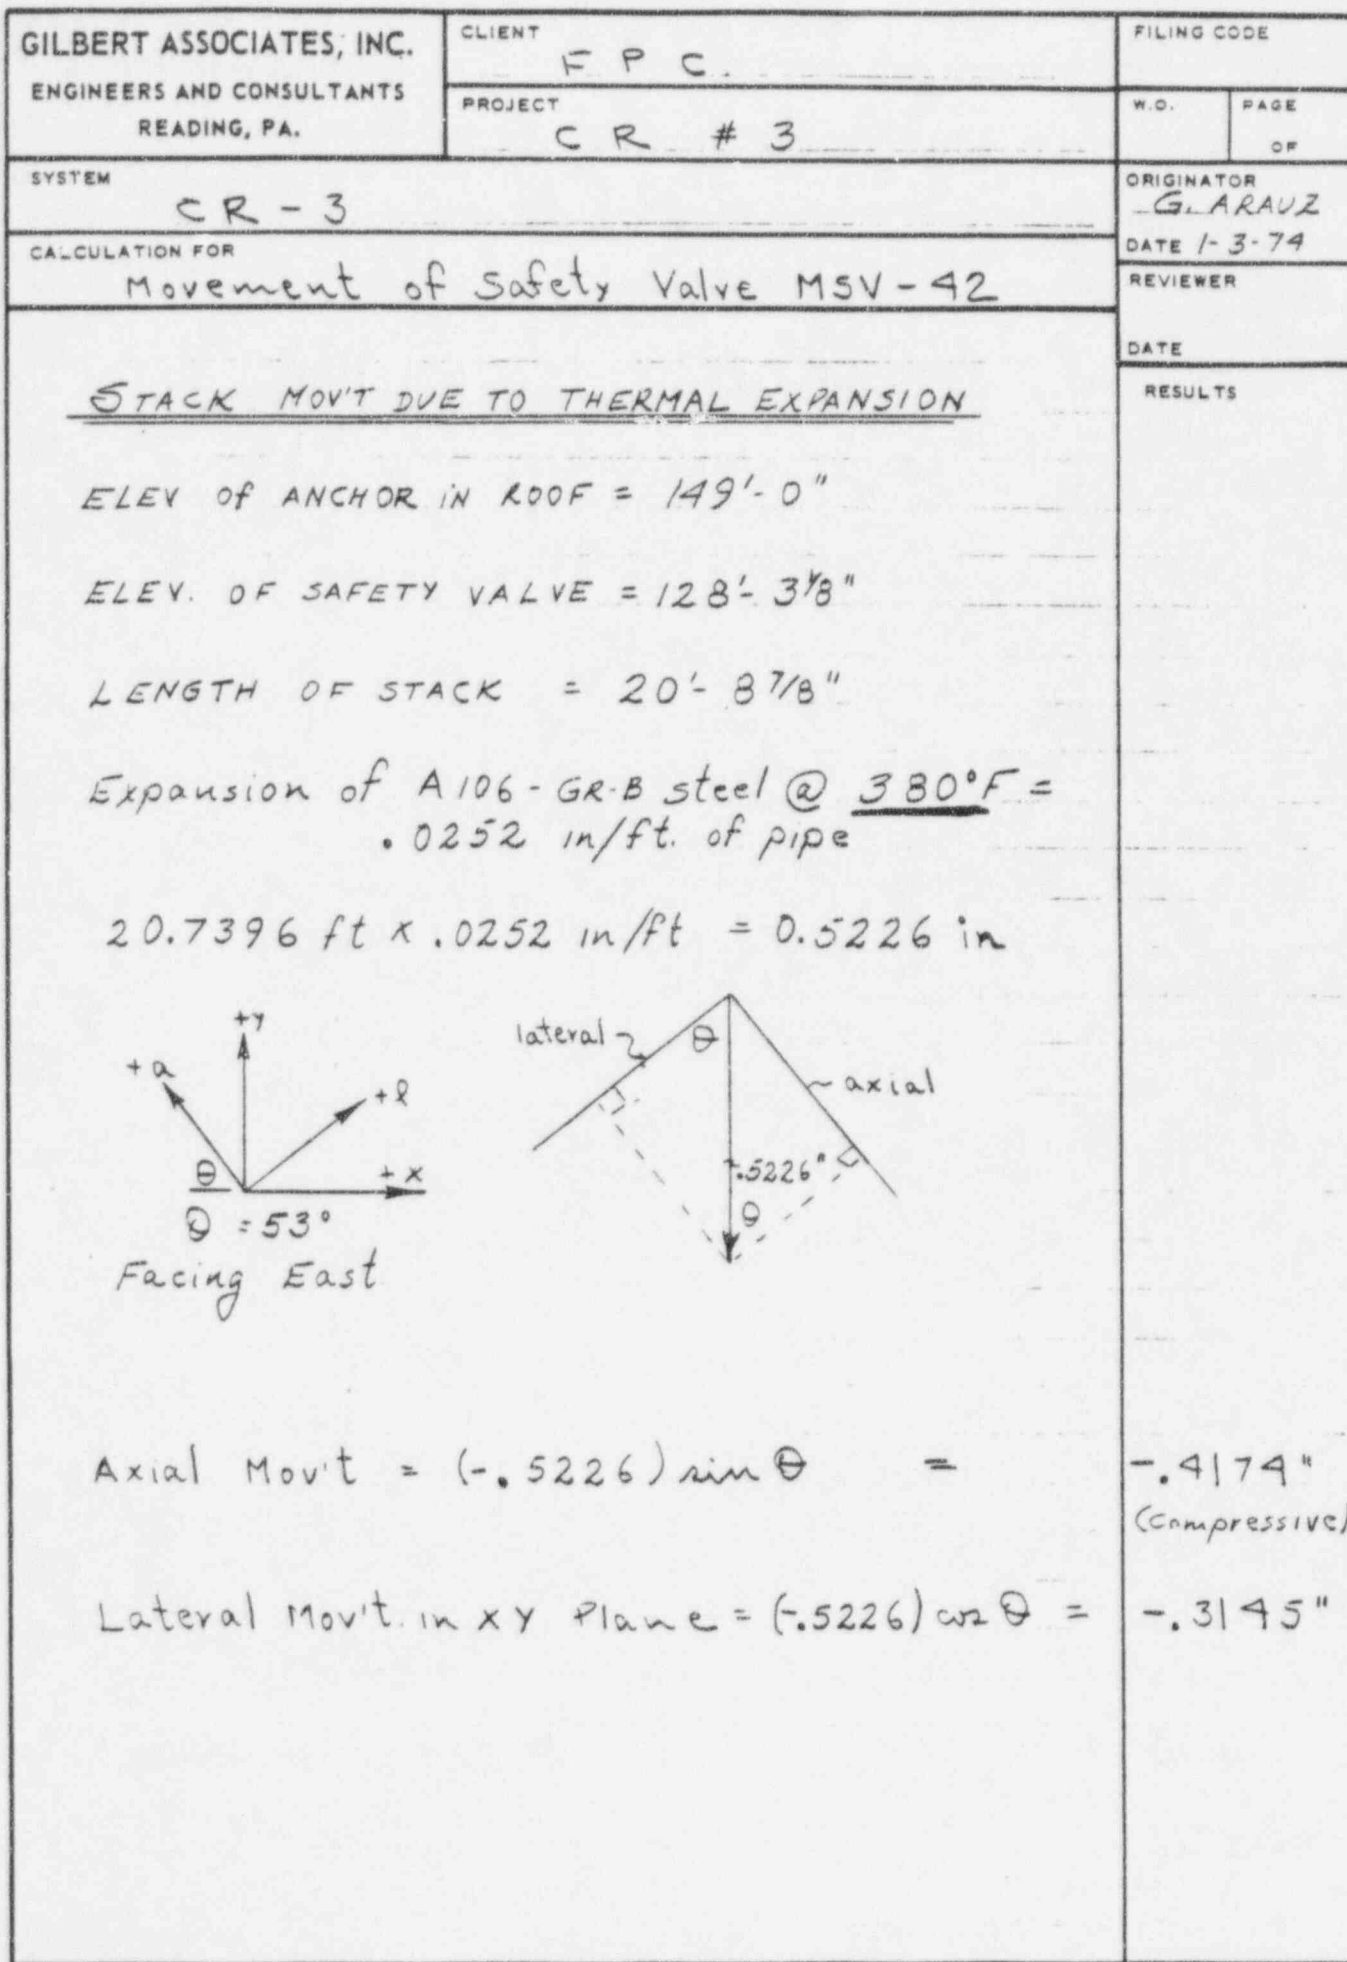 GILBERT ASSOCIATES, INC.
ENGINEERS AND CONSULTANTS
READING, PA.
CLIENT
F P C.
PROJECT
C R # 3
FILING CODE
W.O.
PAGE
OF
SYSTEM
CR-3
ORIGINATOR
G. ARAUZ
DATE 1-3-74
CALCULATION FOR
Movement of Safety Valve MSV-42
REVIEWER
DATE
RESULTS
STACK MOV'T DUE TO THERMAL EXPANSION
ELEV of ANCHOR IN ROOF = 149'-0"
ELEV. OF SAFETY VALVE = 128'-3 1/8"
LENGTH OF STACK = 20'-8 7/8"
Expansion of A106-GR-B steel @ 380°F =
.0252 in/ft. of pipe
20.7396 ft x .0252 in/ft = 0.5226 in
+y
+a
+l
θ
+x
θ = 53°
Facing East
lateral
θ
axial
-.5226"
θ
Axial Mov't = (-.5226) sin θ = -.4174"
(Compressive)
Lateral Mov't. in XY Plane = (-.5226) cos θ = -.3145"